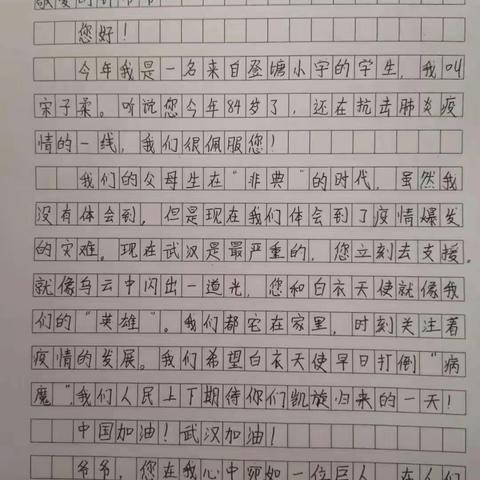 敬爱的
您好！
今年我是一名来自登塘小学的学生，我叫
宋子柔。听说您今年84岁了，还在抗击肺炎疫
情的一线，我们很佩服您！
我们的父母生在“非典”的时代，虽然我
没有体会到，但是现在我们体会到了疫情爆发
的灾难。现在武汉是最严重的，您立刻去支援。
就像乌云中闪出一道光，您和白衣天使就像我
们的“英雄”。我们都宅在家里，时刻关注着
疫情的发展。我们希望白衣天使早日打倒“病
魔”，我们人民上下期待你们凯旋归来的一天！
中国加油！武汉加油！
爷爷，您在我心中宛如一位巨人，在人们